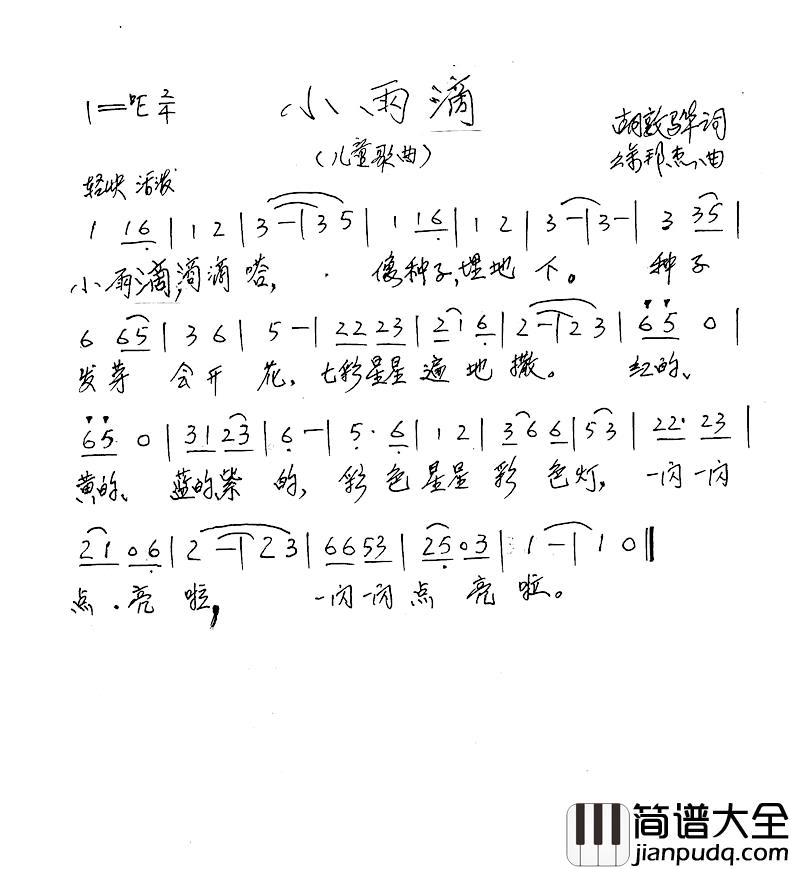 小雨滴
1=ᵇE 2/4
(儿童歌曲)
胡敦骅词
徐邦杰曲
轻快 活泼
1 16 | 1 2 | 3 — | 3 5 | 1 16 | 1 2 | 3 — | 3 — | 3 35 |
小雨滴,滴滴嗒, 像种子,埋地下。 种子
6 65 | 3 6 | 5 — | 22 23 | 21 6 | 2 — | 2 3 | 65 0 |
发芽 会开花, 七彩星星遍地撒。 红的、
65 0 | 31 23 | 6 — | 5· 6 | 1 2 | 36 6 | 53 | 22· 23 |
黄的、 蓝的紫的, 彩色星星彩色灯, 一闪一闪
21 06 | 2 — | 2 3 | 66 53 | 25 03 | 1 — | 1 0 ‖
点·亮啦, 一闪一闪点亮啦。
简谱大全
jianpudq.com